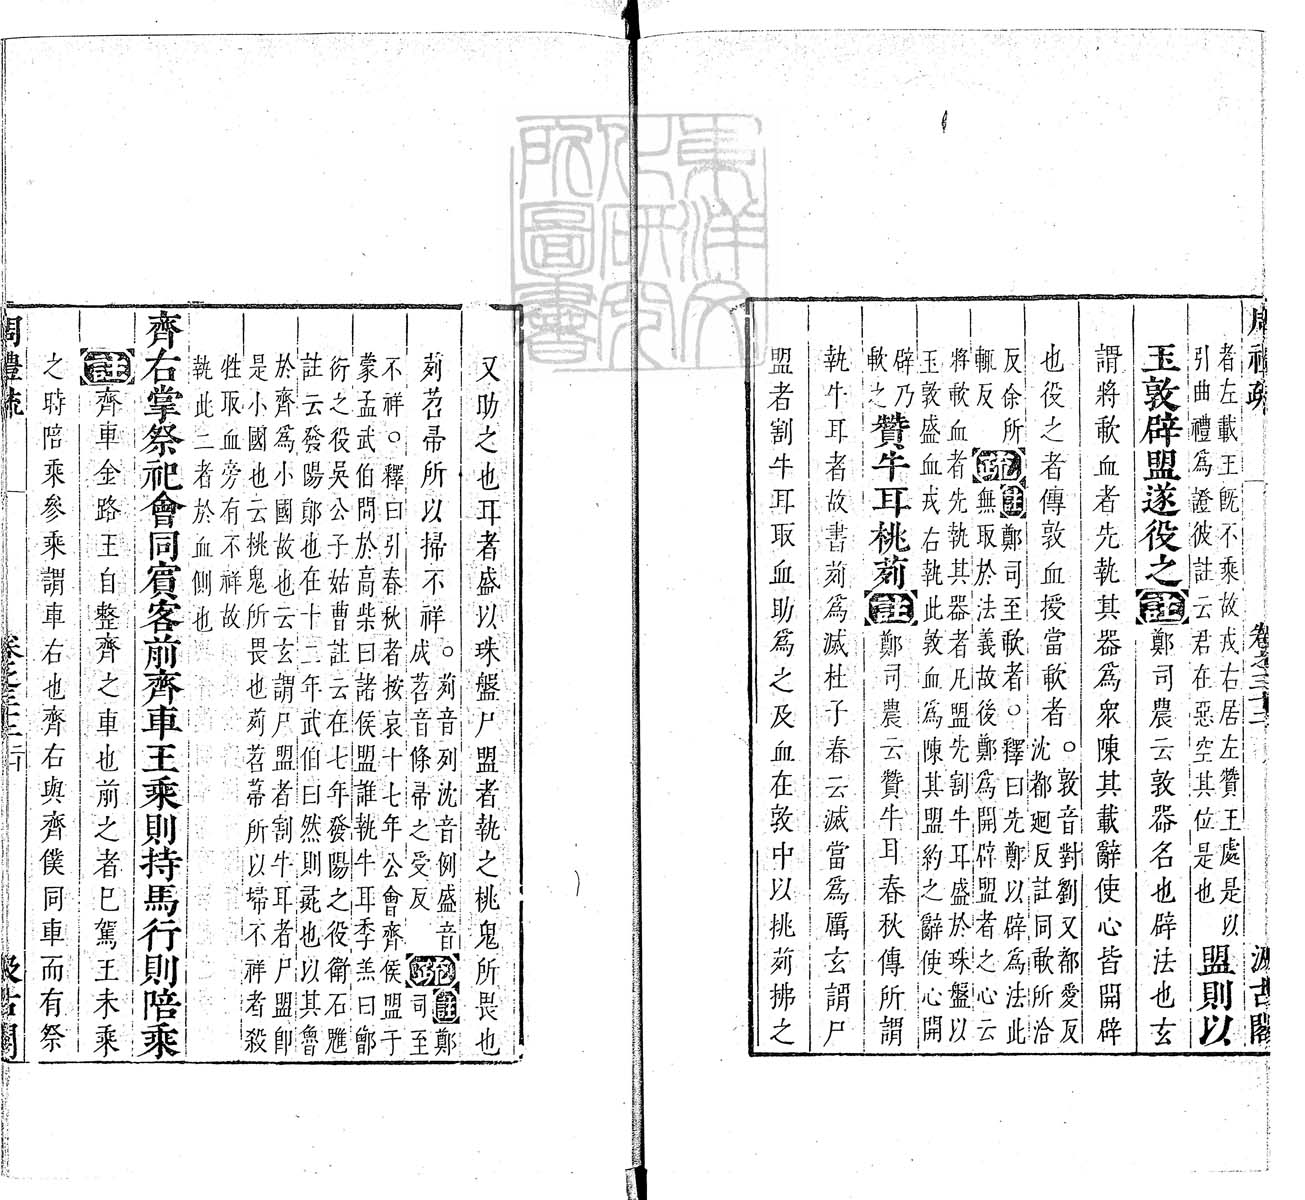 周禮疏 卷之三十二 汲古閣
者左載王旣不乘故戎右居左贊王處是以
引曲禮爲證彼註云君在惡空其位是也
盟則以
玉敦辟盟遂役之註鄭司農云敦器名也辟法也玄
謂將歃血者先執其器爲衆陳其載辭使心皆開辟
也役之者傳敦血授當歃者○敦音對劉又都愛反
沈都迴反註同歃所洽
反徐所
輒反
疏註鄭司至歃者○釋曰先鄭以辟爲法此
無取於法義故後鄭爲開辟盟者之心云
將歃血者先執其器者凡盟先割牛耳盛於珠盤以
玉敦盛血戎右執此敦血爲陳其盟約之辭使心開
辟乃
歃之
贊牛耳桃茢註鄭司農云贊牛耳春秋傳所謂
執牛耳者故書茢爲滅杜子春云滅當爲厲玄謂尸
盟者割牛耳取血助爲之及血在敦中以桃茢拂之
又助之也耳者盛以珠盤尸盟者執之桃鬼所畏也
茢苕帚所以掃不祥○茢音列沈音例盛音
成苕音條帚之受反
疏註鄭
司至
不祥○釋曰引春秋者按哀十七年公會齊侯盟于
蒙孟武伯問於高柴曰諸侯盟誰執牛耳季羔曰鄫
衍之役吳公子姑曹註云在七年發陽之役衛石魋
註云發陽鄖也在十二年武伯曰然則彘也以其魯
於齊爲小國故也云玄謂尸盟者割牛耳者尸盟即
是小國也云桃鬼所畏也茢苕帚所以埽不祥者殺
牲取血旁有不祥故
執此二者於血側也
齊右掌祭祀會同賓客前齊車王乘則持馬行則陪乘
註齊車金路王自整齊之車也前之者已駕王未乘
之時陪乘參乘謂車右也齊右與齊僕同車而有祭
周禮疏 卷之三十二 汲古閣
東洋文化研究所圖書